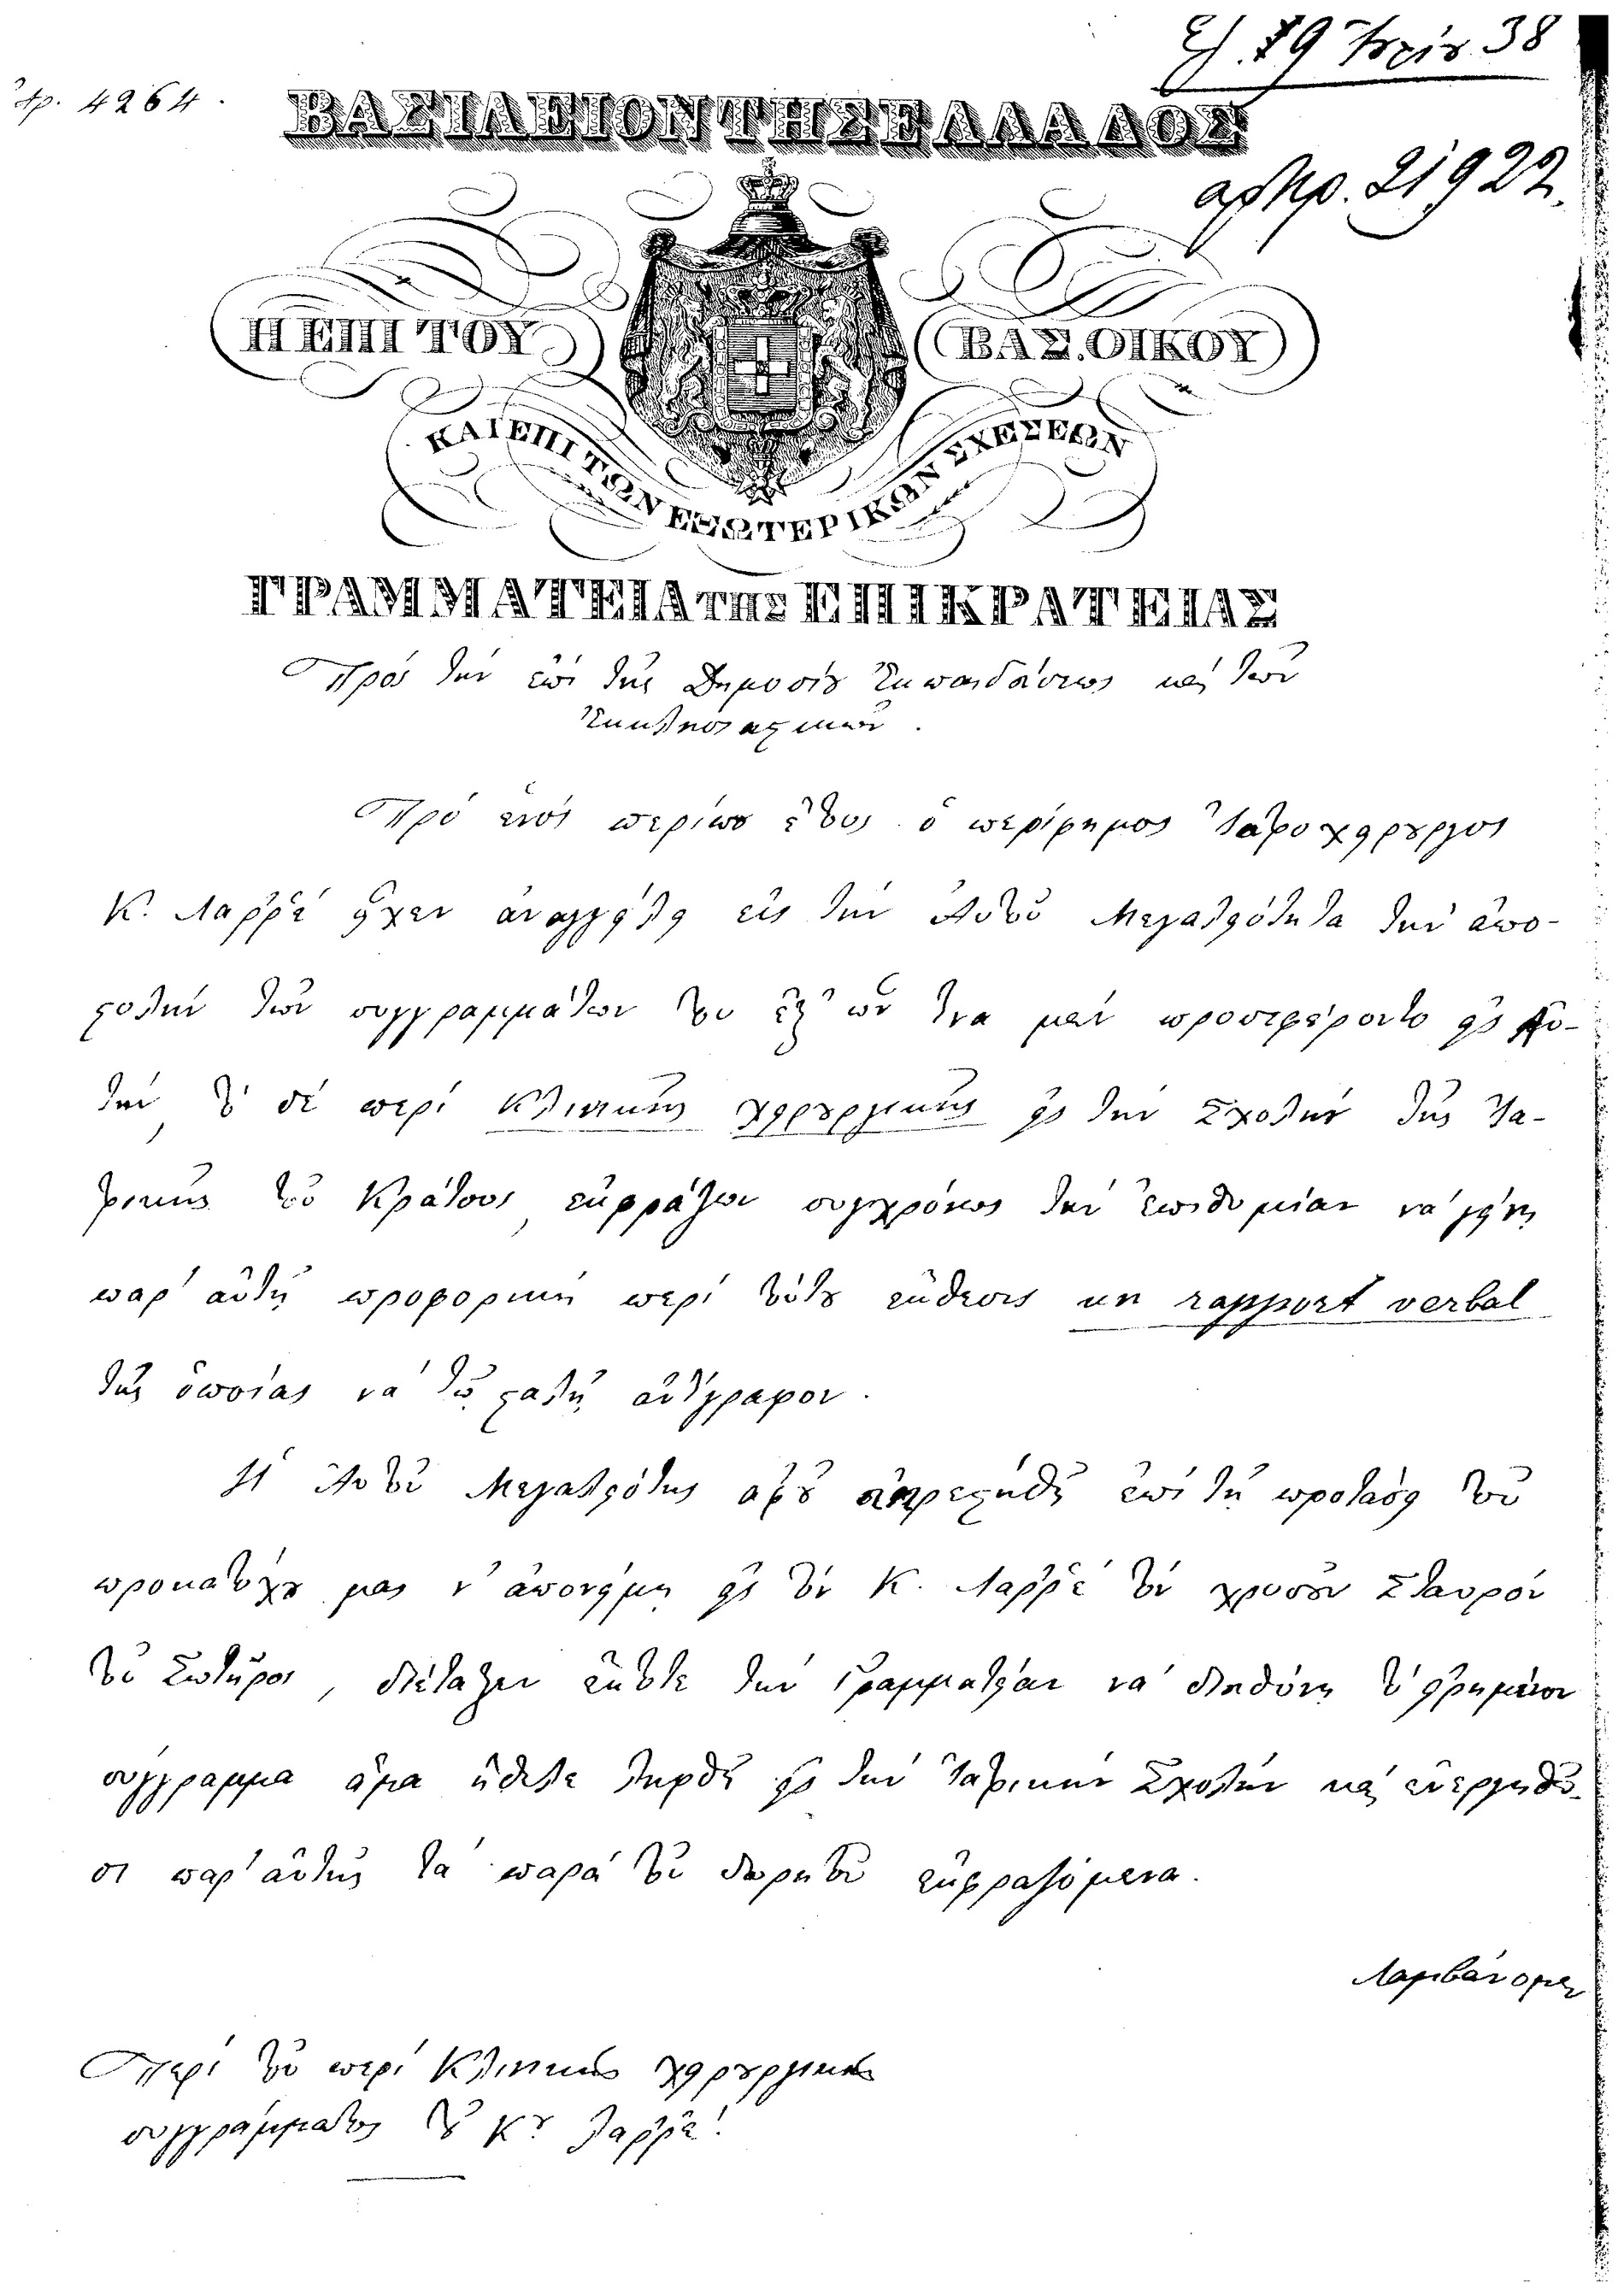 Ἀρ. 4264.
ΒΑΣΙΛΕΙΟΝ ΤΗΣ ΕΛΛΑΔΟΣ
ἀριθ. 21922.
Η ΕΠΙ ΤΟΥ ΒΑΣ. ΟΙΚΟΥ
ΚΑΙ ΕΠΙ ΤΩΝ ΕΞΩΤΕΡΙΚΩΝ ΣΧΕΣΕΩΝ
ΓΡΑΜΜΑΤΕΙΑ της ΕΠΙΚΡΑΤΕΙΑΣ
Πρός τήν ἐπί τῆς Δημοσίου Ἐκπαιδεύσεως καί τῶν
Ἐκκλησιαστικῶν.
Πρό ἑνός περίπου ἔτους ὁ περίφημος Ἰατροχειρουργός
Κ. Λαῤῥέ εἶχεν ἀναγγείλει εἰς τήν Αὐτοῦ Μεγαλειότητα τήν ἀπο-
στολήν τῶν συγγραμμάτων του ἐξ ὧν τινα μέν προσεφέροντο εἰς Αὐ-
τήν, τό δέ περί Κλινικῆς χειρουργικῆς εἰς τήν Σχολήν τῆς Ἰα-
τρικῆς τοῦ Κράτους, ἐκφράζων συγχρόνως τήν ἐπιθυμίαν νά γείνῃ
παρ' αὐτῇ προφορική περί τούτου ἔκθεσις un rapport verbal
τῆς ὁποίας νά τῷ σταλῇ ἀντίγραφον.
Ἡ Αὐτοῦ Μεγαλειότης ἀφοῦ εὐηρεστήθη ἐπί τῇ προτάσει τοῦ
προκατόχου μας ν' ἀπονείμῃ εἰς τόν Κ. Λαῤῥέ τόν χρυσοῦν Σταυρόν
τοῦ Σωτῆρος, διέταξεν ἔκτοτε τήν Γραμματείαν νά διευθύνῃ τό εἰρημένον
σύγγραμμα ἅμα ἤθελε ληφθῆ εἰς τήν Ἰατρικήν Σχολήν καί ἐνεργηθῶ-
σι παρ' αὐτῆς τά παρά τοῦ δωρητοῦ ἐκφραζόμενα.
Λαμβάνομεν
Περί τοῦ περί Κλινικῆς χειρουργικῆς
συγγράμματος τοῦ Κου Λαῤῥέ.